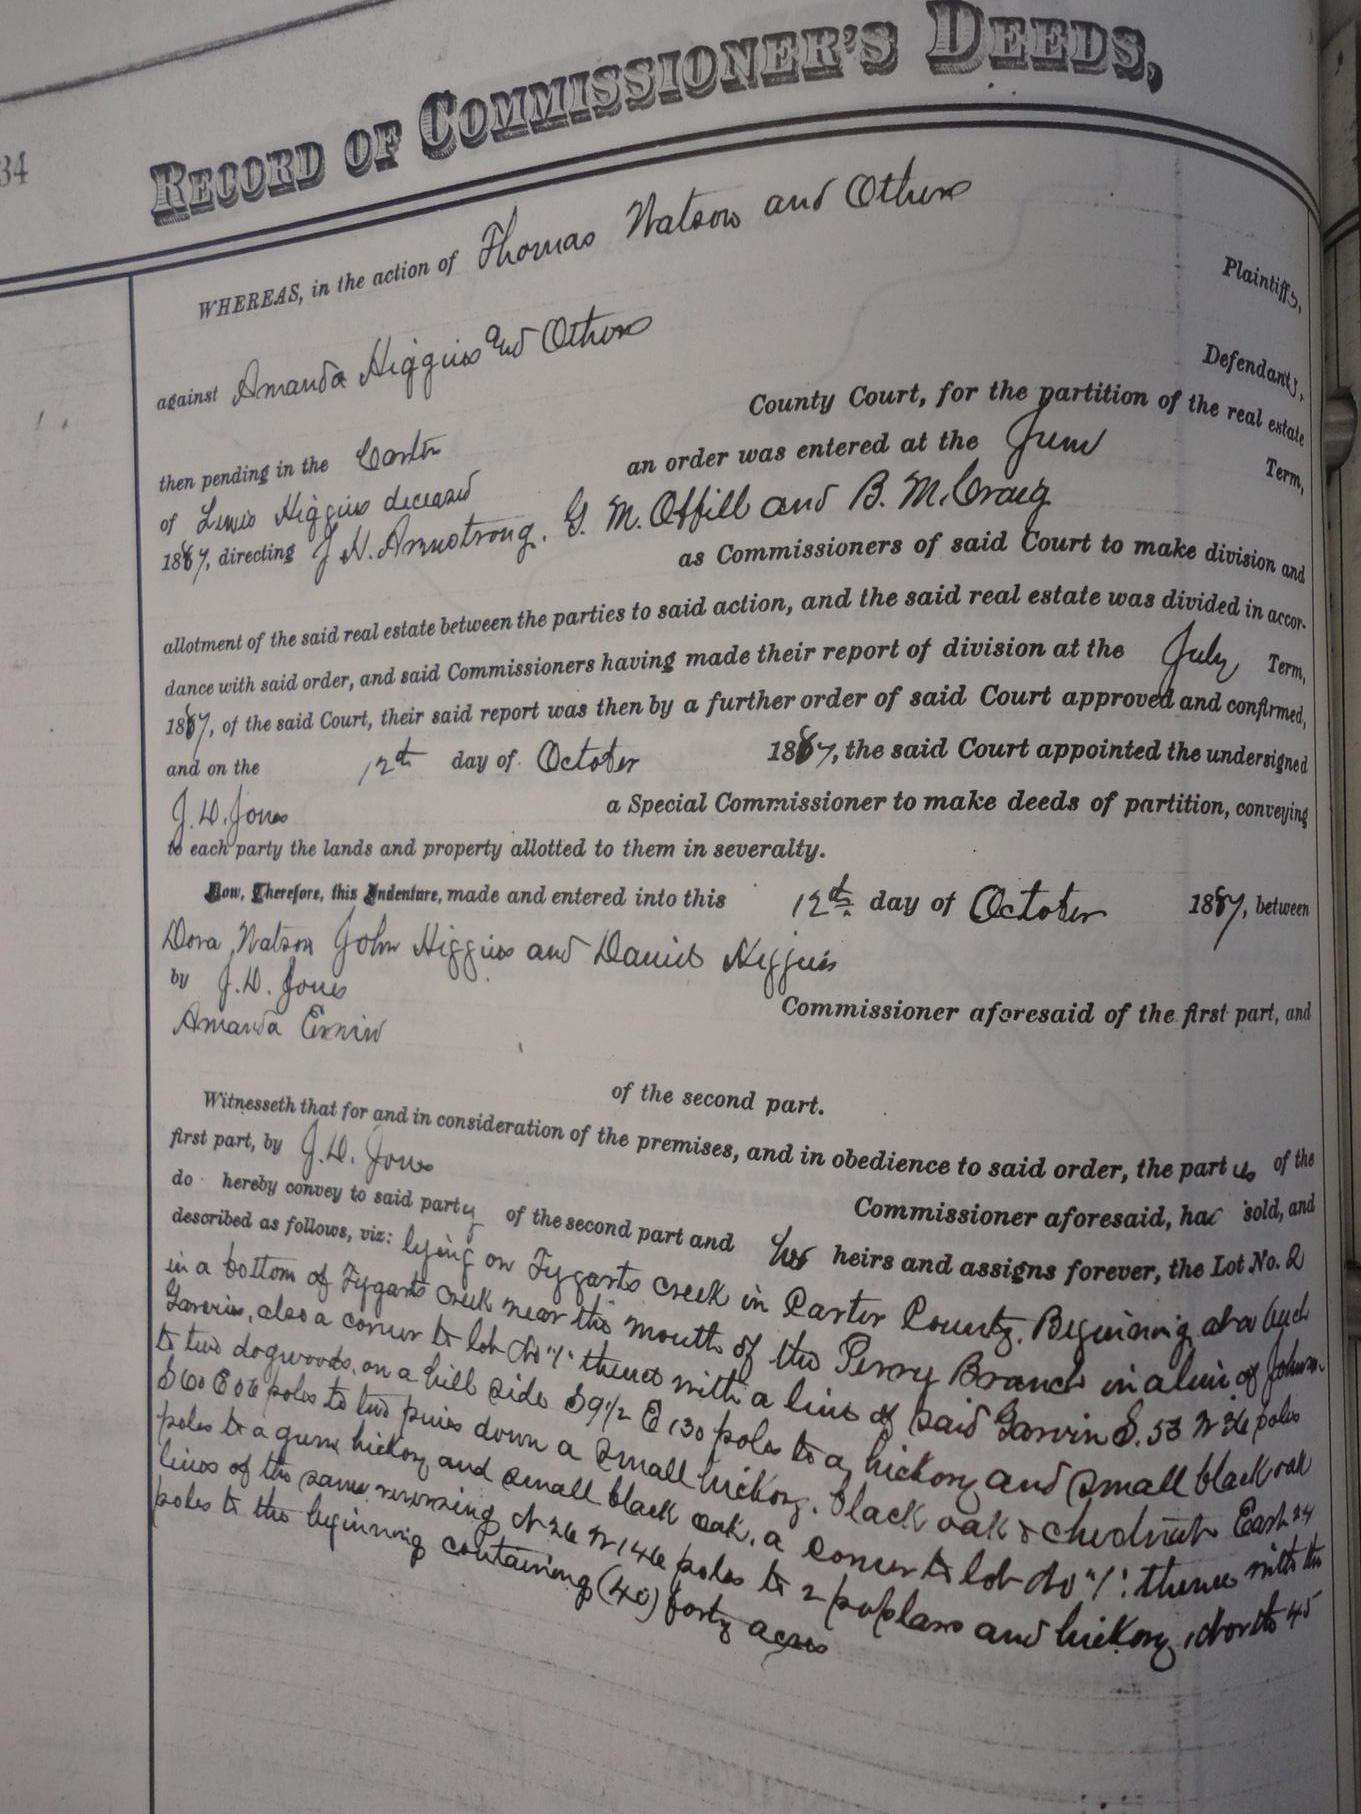 34
RECORD OF COMMISSIONER'S DEEDS,
WHEREAS, in the action of Thomas Watson and Others
Plaintiffs,
against Amanda Higgins and Others
Defendants,
then pending in the Carter County Court, for the partition of the real estate
of Lewis Higgins deceased an order was entered at the June Term,
1887, directing J. H. Armstrong. G. M. Offill and B. M. Craig
as Commissioners of said Court to make division and
allotment of the said real estate between the parties to said action, and the said real estate was divided in accor-
dance with said order, and said Commissioners having made their report of division at the July Term,
1887, of the said Court, their said report was then by a further order of said Court approved and confirmed,
and on the 12th day of October 1887, the said Court appointed the undersigned
J. D. Jones a Special Commissioner to make deeds of partition, conveying
to each party the lands and property allotted to them in severalty.
Now, Therefore, this Indenture, made and entered into this 12th day of October 1887, between
Dora Watson John Higgins and Daniel Higgins
by J. D. Jones Commissioner aforesaid of the first part, and
Amanda Erwin
of the second part.
Witnesseth that for and in consideration of the premises, and in obedience to said order, the parties of the
first part, by J. D. Jones Commissioner aforesaid, has sold, and
do hereby convey to said party of the second part and her heirs and assigns forever, the Lot No. 2
described as follows, viz: lying on Tygarts creek in Carter County. Beginning at a
in a bottom of Tygarts creek near the mouth of the Perry Branch in a line of
Garvins, also a corner to lot No "1" thence with a line of said Garvin S. 53 W 36 poles
to two dogwoods, on a hill side S 9 1/2 E 130 poles to a hickory and small black oak
S 60 E poles to two pines down a small hickory. black oak & chestnut East 24
poles to a gum hickory and small black oak, a corner to lot No "1". thence with the
lines of the same reversing N 26 W 146 poles to 2 poplars and hickory, North 45
poles to the beginning containing (40) forty acres